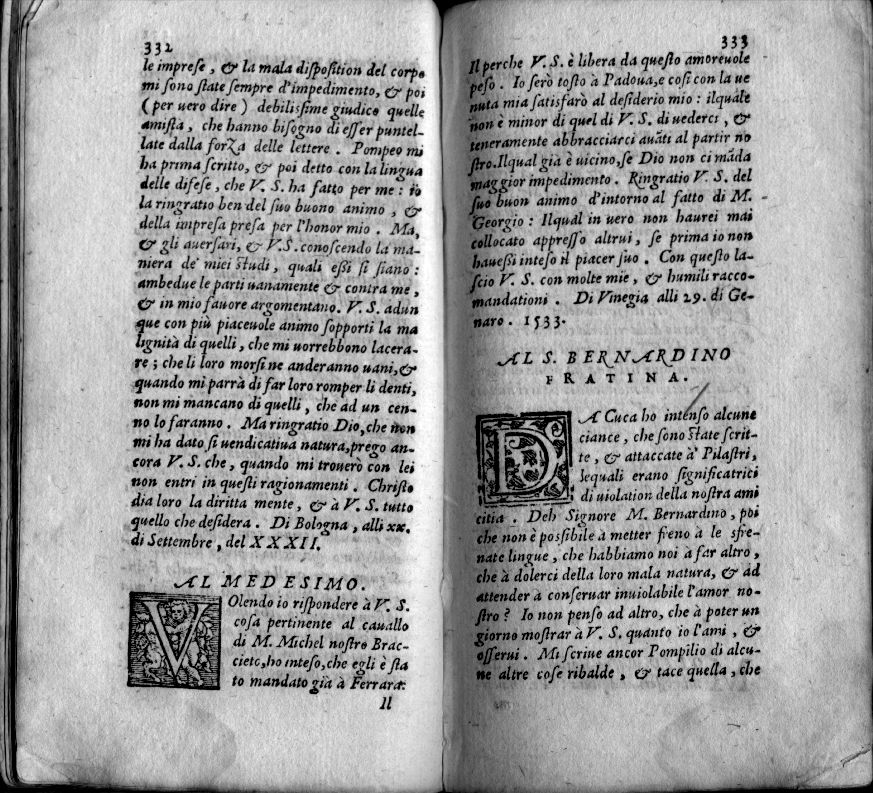 332
le imprese, & la mala disposition del corpo
mi sono state sempre d'impedimento, & poi
(per uero dire) debilissime giudico quelle
amistà, che hanno bisogno di esser puntel-
late dalla forza delle lettere. Pompeo mi
ha prima scritto, & poi detto con la lingua
delle difese, che V. S. ha fatto per me: io
la ringratio ben del suo buono animo, &
della impresa presa per l'honor mio. Ma,
& gli auersari, & V.S. conoscendo la ma-
niera de' miei studi, quali eßi si siano:
ambedue le parti uanamente & contra me,
& in mio fauore argomentano. V. S. adun
que con più piaceuole animo sopporti la ma
lignità di quelli, che mi uorrebbono lacera-
re; che li loro morsi ne anderanno uani, &
quando mi parrà di far loro romper li denti,
non mi mancano di quelli, che ad un cen-
no lo faranno. Ma ringratio Dio, che non
mi ha dato sì uendicatiua natura, prego an-
cora V. S. che, quando mi trouerò con lei
non entri in questi ragionamenti. Christo
dia loro la diritta mente, & à V. S. tutto
quello che desidera. Di Bologna, alli xx.
di Settembre, del XXXII.
AL MEDESIMO.
VOlendo io rispondere à V. S.
cosa pertinente al cauallo
di M. Michel nostro Brac-
cieto, ho inteso, che egli è sta
to mandato già à Ferrara:
Il
333
Il perche V. S. è libera da questo amoreuole
peso. Io serò tosto à Padoua, e così con la ue
nuta mia satisfarò al desiderio mio: ilquale
non è minor di quel di V. S. di uederci, &
teneramente abbracciarci auãti al partir no
stro. Ilqual già è uicino, se Dio non ci mãda
maggior impedimento. Ringratio V. S. del
suo buon animo d'intorno al fatto di M.
Georgio: Ilqual in uero non haurei mai
collocato appresso altrui, se prima io non
haueßi inteso il piacer suo. Con questo la-
scio V. S. con molte mie, & humili racco-
mandationi. Di Vinegia alli 29. di Ge-
naro. 1533.
AL S. BERNARDINO
FRATINA.
DA Cuca ho intenso alcune
ciance, che sono state scrit-
te, & attaccate à' Pilastri,
lequali erano significatrici
di uiolation della nostra ami
citia. Deh Signore M. Bernardino, poi
che non è possibile à metter freno à le sfre-
nate lingue, che habbiamo noi à far altro,
che à dolerci della loro mala natura, & ad
attender à conseruar inuiolabile l'amor no-
stro? Io non penso ad altro, che à poter un
giorno mostrar à V. S. quanto io l'ami, &
osserui. Mi scriue ancor Pompilio di alcu-
ne altre cose ribalde, & tace quella, che